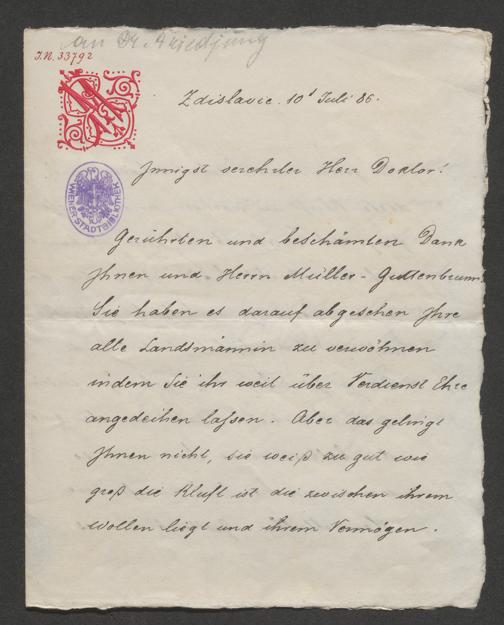 an Dr. Friedjung
J.N. 33792
WIENER STADTBIBLIOTHEK
Zdislavic. 10t Juli 86.
Innigst verehrter Herr Doktor!
Gerührten und beschämten Dank
Ihnen und Herrn Müller-Guttenbrunn
Sie haben es darauf abgesehen Ihre
alte Landsmännin zu verwöhnen
indem Sie ihr weit über Verdienst Ehre
angedeihen lassen. Aber das gelingt
Ihnen nicht, sie weiß zu gut wie
groß die Kluft ist die zwischen ihrem
Wollen liegt und ihrem Vermögen.